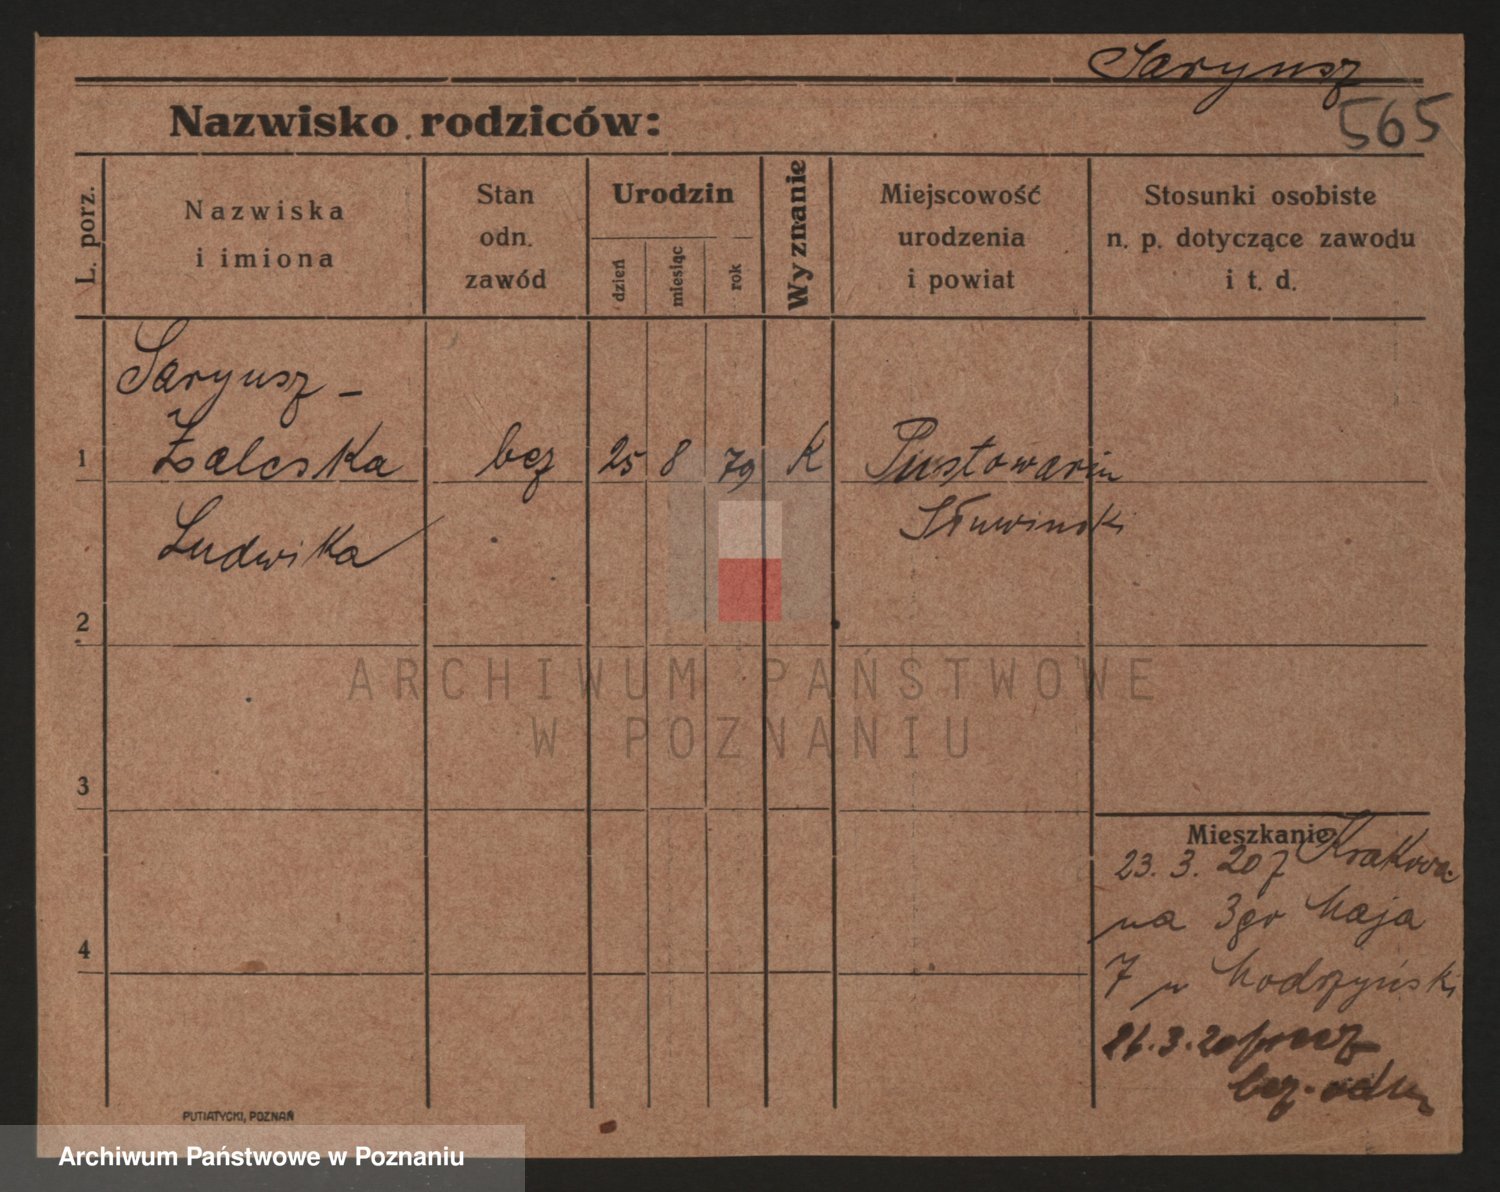 Saryusz
565
Nazwisko rodziców:
L. porz.
Nazwiska
i imiona
Stan
odn.
zawód
Urodzin
dzień
miesiąc
rok
Wyznanie
Miejscowość
urodzenia
i powiat
Stosunki osobiste
n. p. dotyczące zawodu
i t. d.
Saryusz –
1 Zaleska bez 25 8 79 K Pustowarin
Ludwika
2
3
Mieszkanie
23. 3. 20 z Krakowa
na 3go Maja
4
7 u Modrzyński
26.3.20
bez
PUTIATYCKI, POZNAŃ
ARCHIWUM PAŃSTWOWE
W POZNANIU
Archiwum Państwowe w Poznaniu